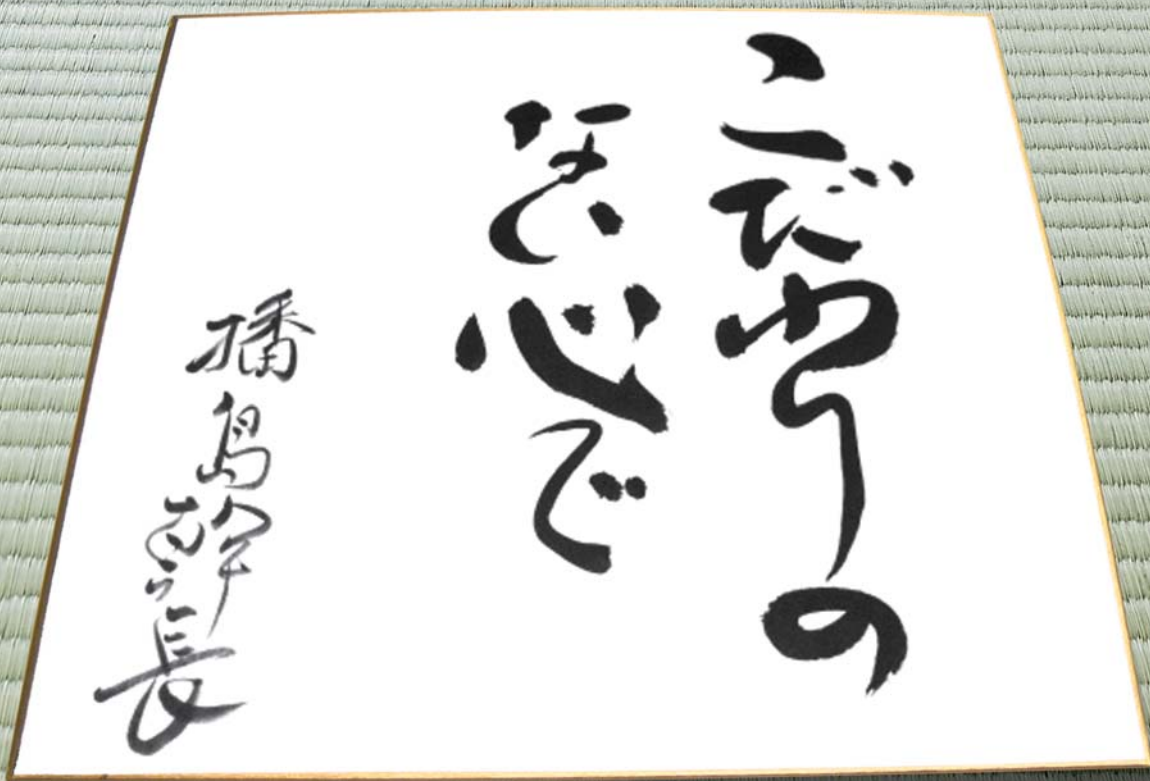 こだわりの
ない心で
播島幹長